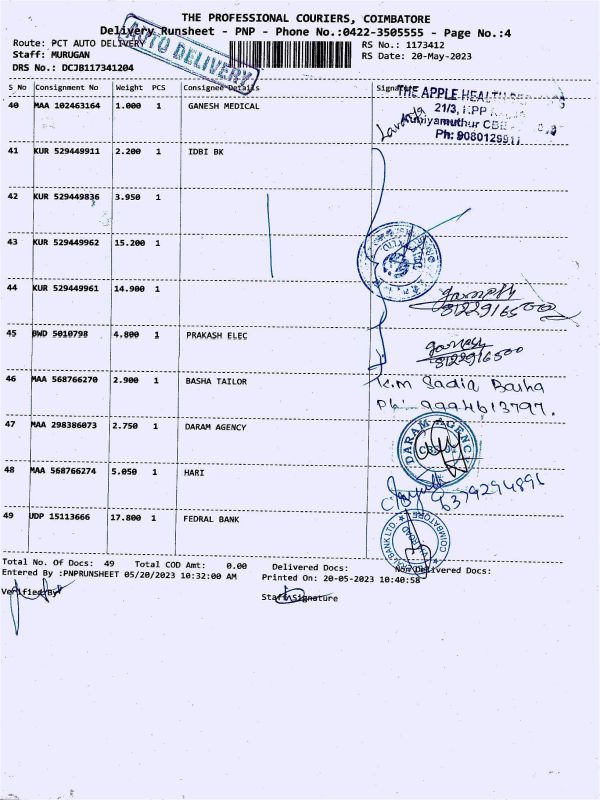 THE PROFESSIONAL COURIERS, COIMBATORE
Delivery Runsheet - PNP - Phone No.:0422-3505555 - Page No.:4
AUTO DELIVERY
Route: PCT AUTO DELIVERY
RS No.: 1173412
Staff: MURUGAN
RS Date: 20-May-2023
DRS No.: DCJB117341204
S No Consignment No Weight PCS Consignee Details Signature
THE APPLE HEALTH
40 MAA 102463164 1.000 1 GANESH MEDICAL
21/3, KPP
Kuniyamuthur CBE
Ph: 9080129911
41 KUR 529449911 2.200 1 IDBI BK
42 KUR 529449836 3.950 1
43 KUR 529449962 15.200 1
44 KUR 529449961 14.900 1
8122916500
45 BWD 5010798 4.800 1 PRAKASH ELEC
8122916500
46 MAA 568766270 2.900 1 BASHA TAILOR
K.M Sadia Basha
Ph: 9994613797.
47 MAA 298386073 2.750 1 DARAM AGENCY
DARAM AGENC
48 MAA 568766274 5.050 1 HARI
6379294896
49 UDP 15113666 17.800 1 FEDRAL BANK
BANK LTD. COIMBATORE
Total No. Of Docs: 49 Total COD Amt: 0.00 Delivered Docs: Non Delivered Docs:
Entered By :PNPRUNSHEET 05/20/2023 10:32:00 AM Printed On: 20-05-2023 10:40:58
Verified By
Staff Signature